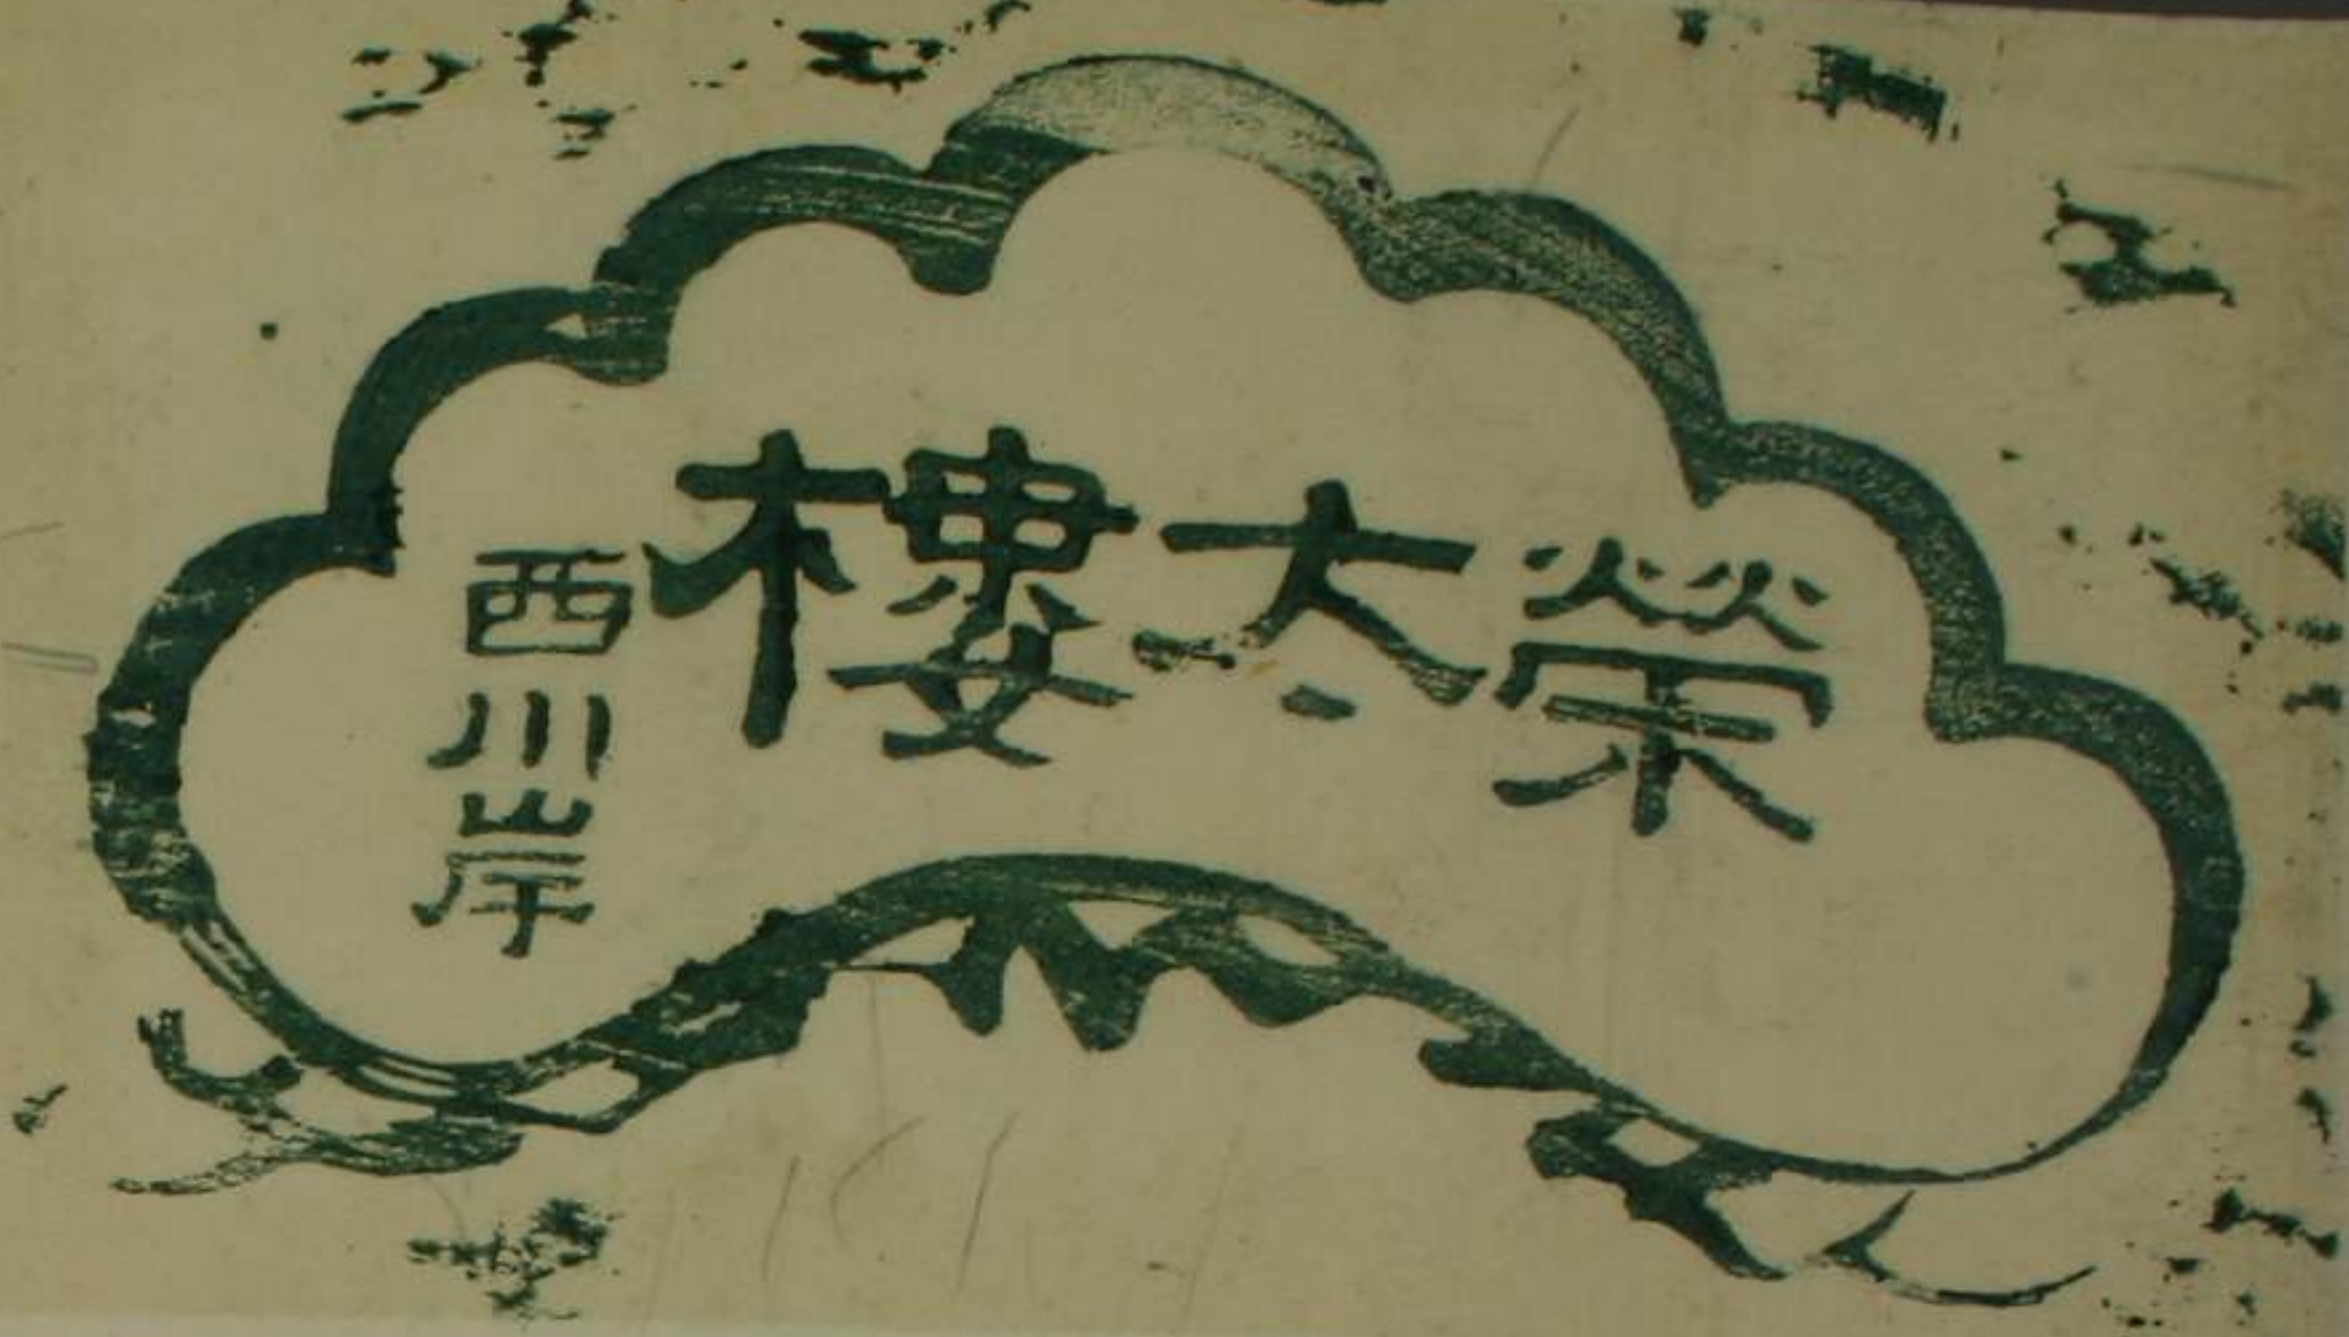 榮太樓
西川岸